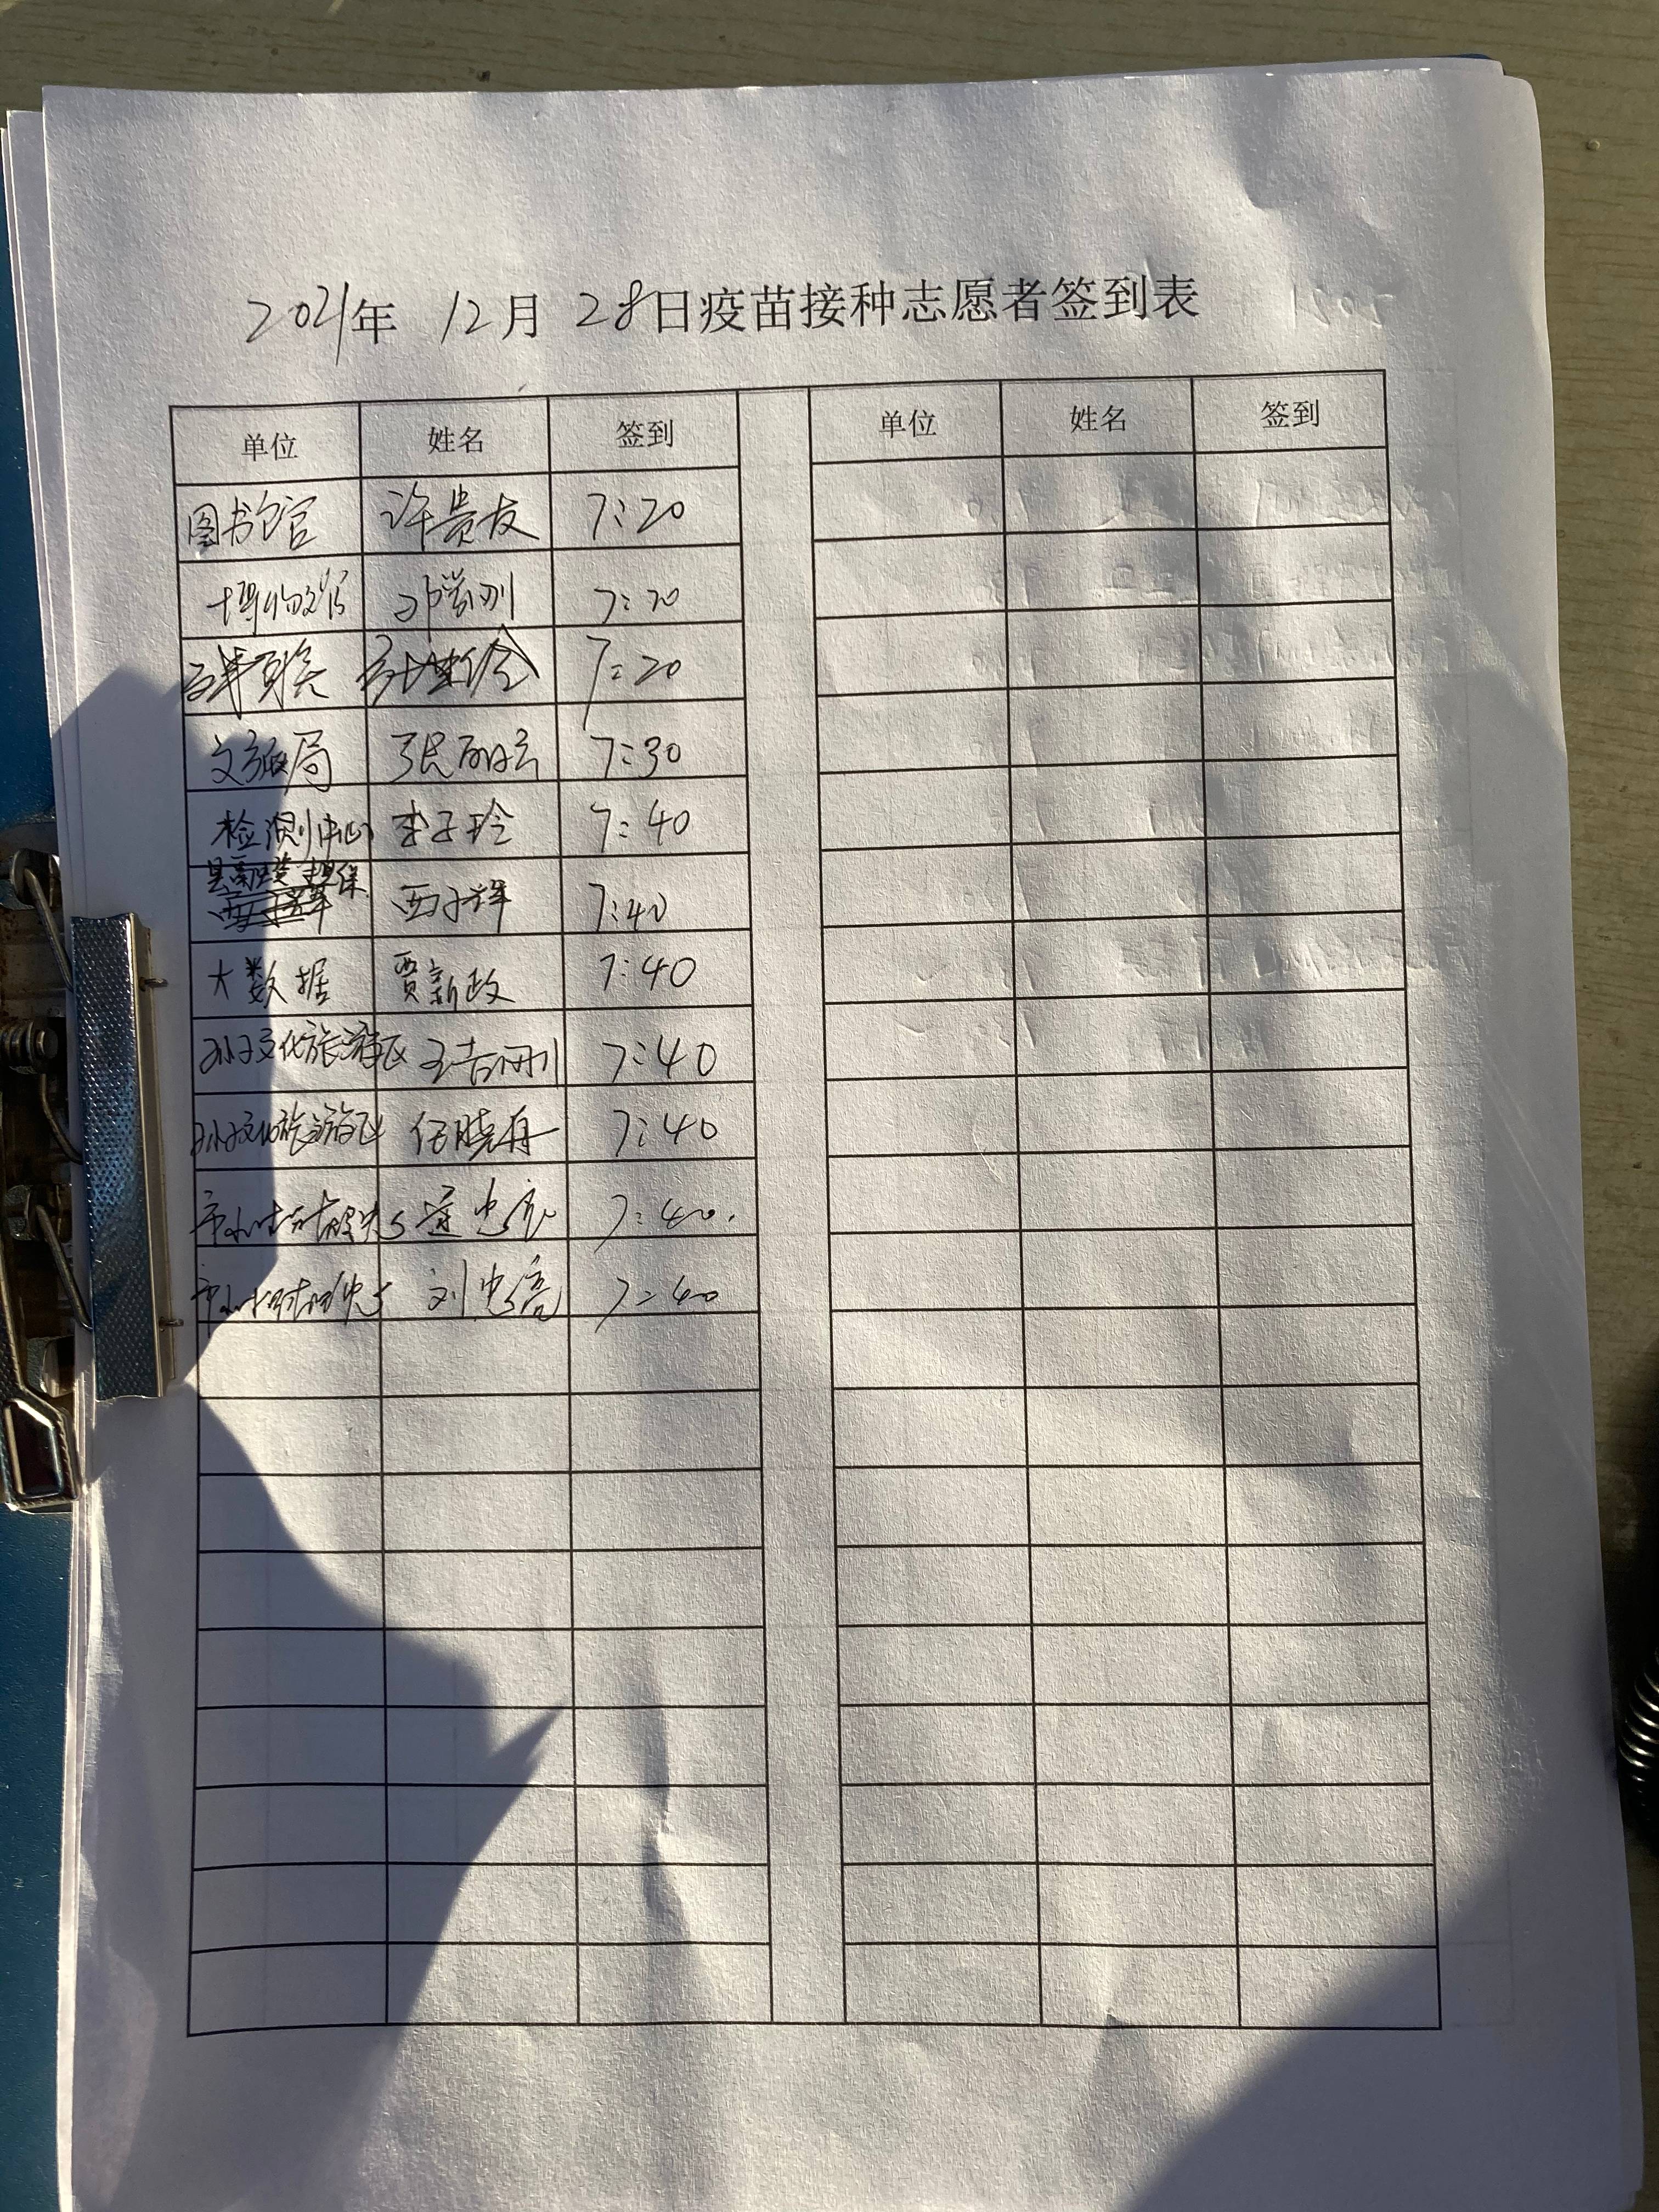 2021年 12月 28日疫苗接种志愿者签到表
单位 姓名 签到 单位 姓名 签到
图书馆 许贵友 7:20
博物馆 7:20
7:20
文旅局 张丽云 7:30
检测中心 李子玲 7:40
西子祥 7:40
大数据 贾新政 7:40
孙子文化旅游区 7:40
孙子文化旅游区 任晓舟 7:40
7:40
刘忠亮 7:40